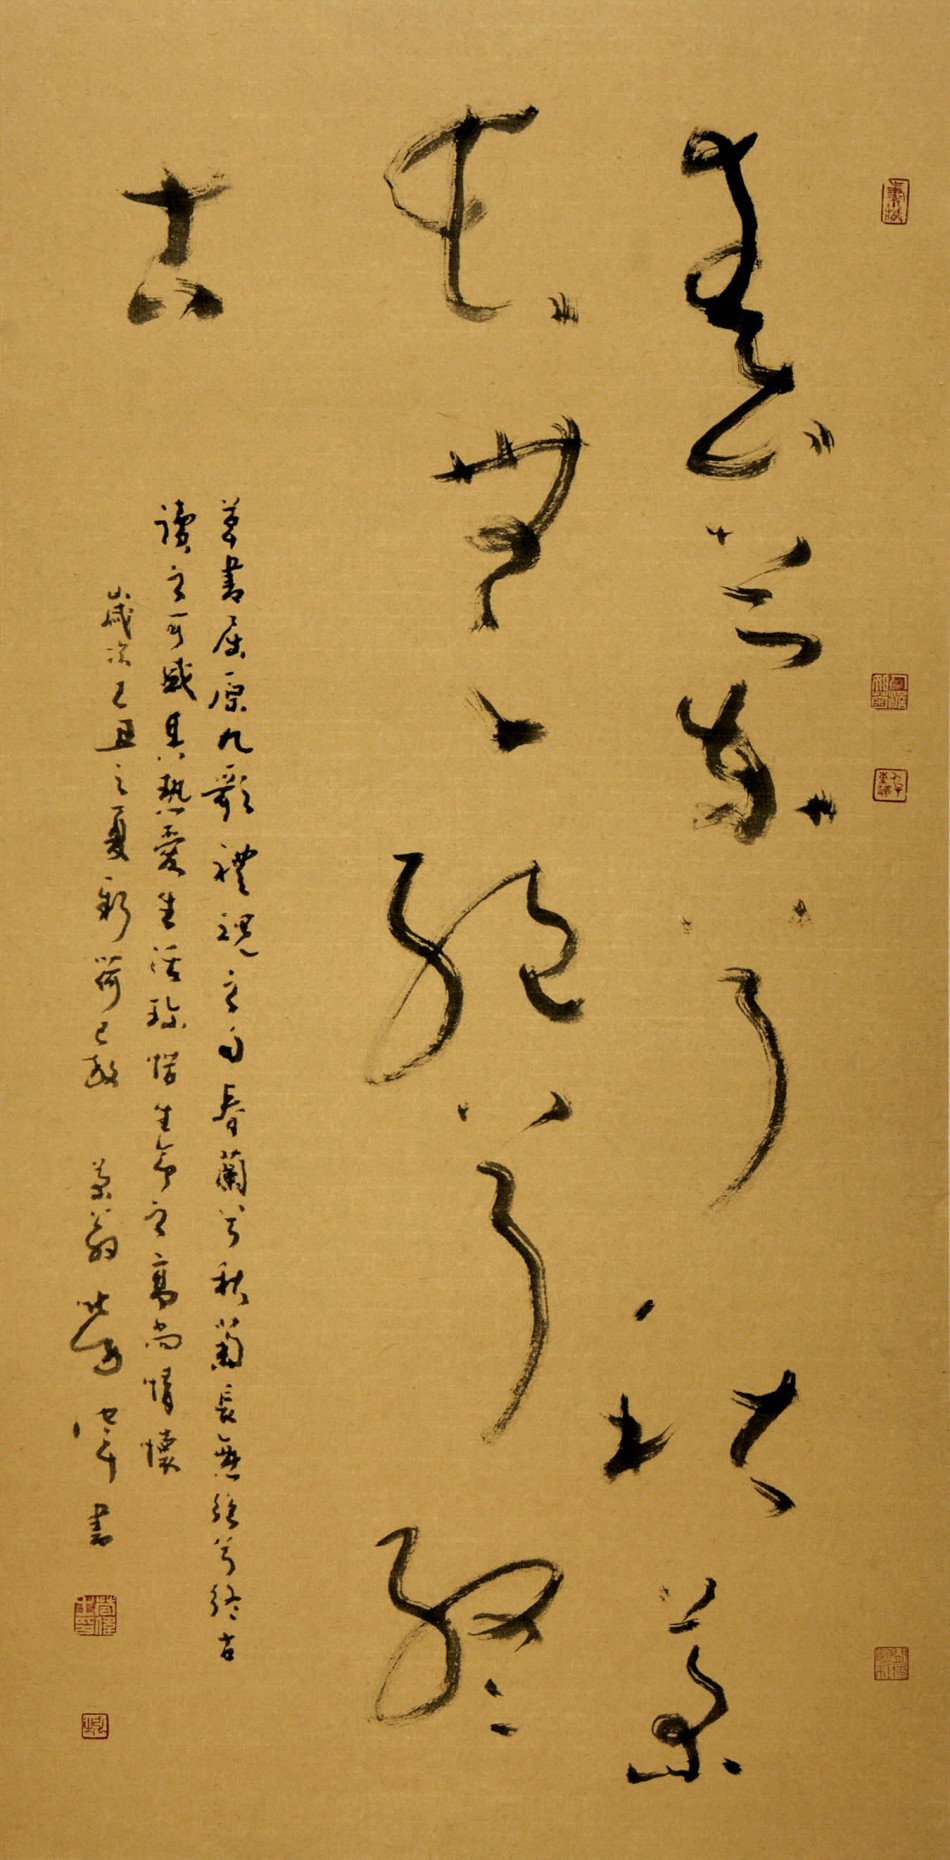 春蘭兮秋菊
長無絕兮終
古
草書屈原九歌禮魂之句春蘭兮秋菊長無絕兮終古
讀之可感其熱愛生活珍惜生命之高尚情懷
歲次己丑之夏新荷已 翁 書